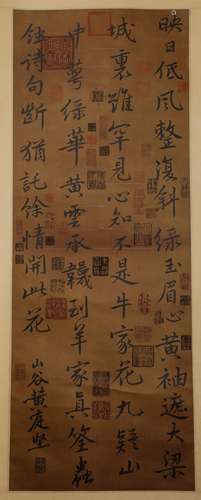 映日低風整復斜綠玉眉心黃袖遮大梁
城裏雖罕見心知不是牛家花九疑山
中萼綠華黃雲承韈到羊家真筌蟲
蝕詩句斷猶託餘情開此花
山谷黃庭堅